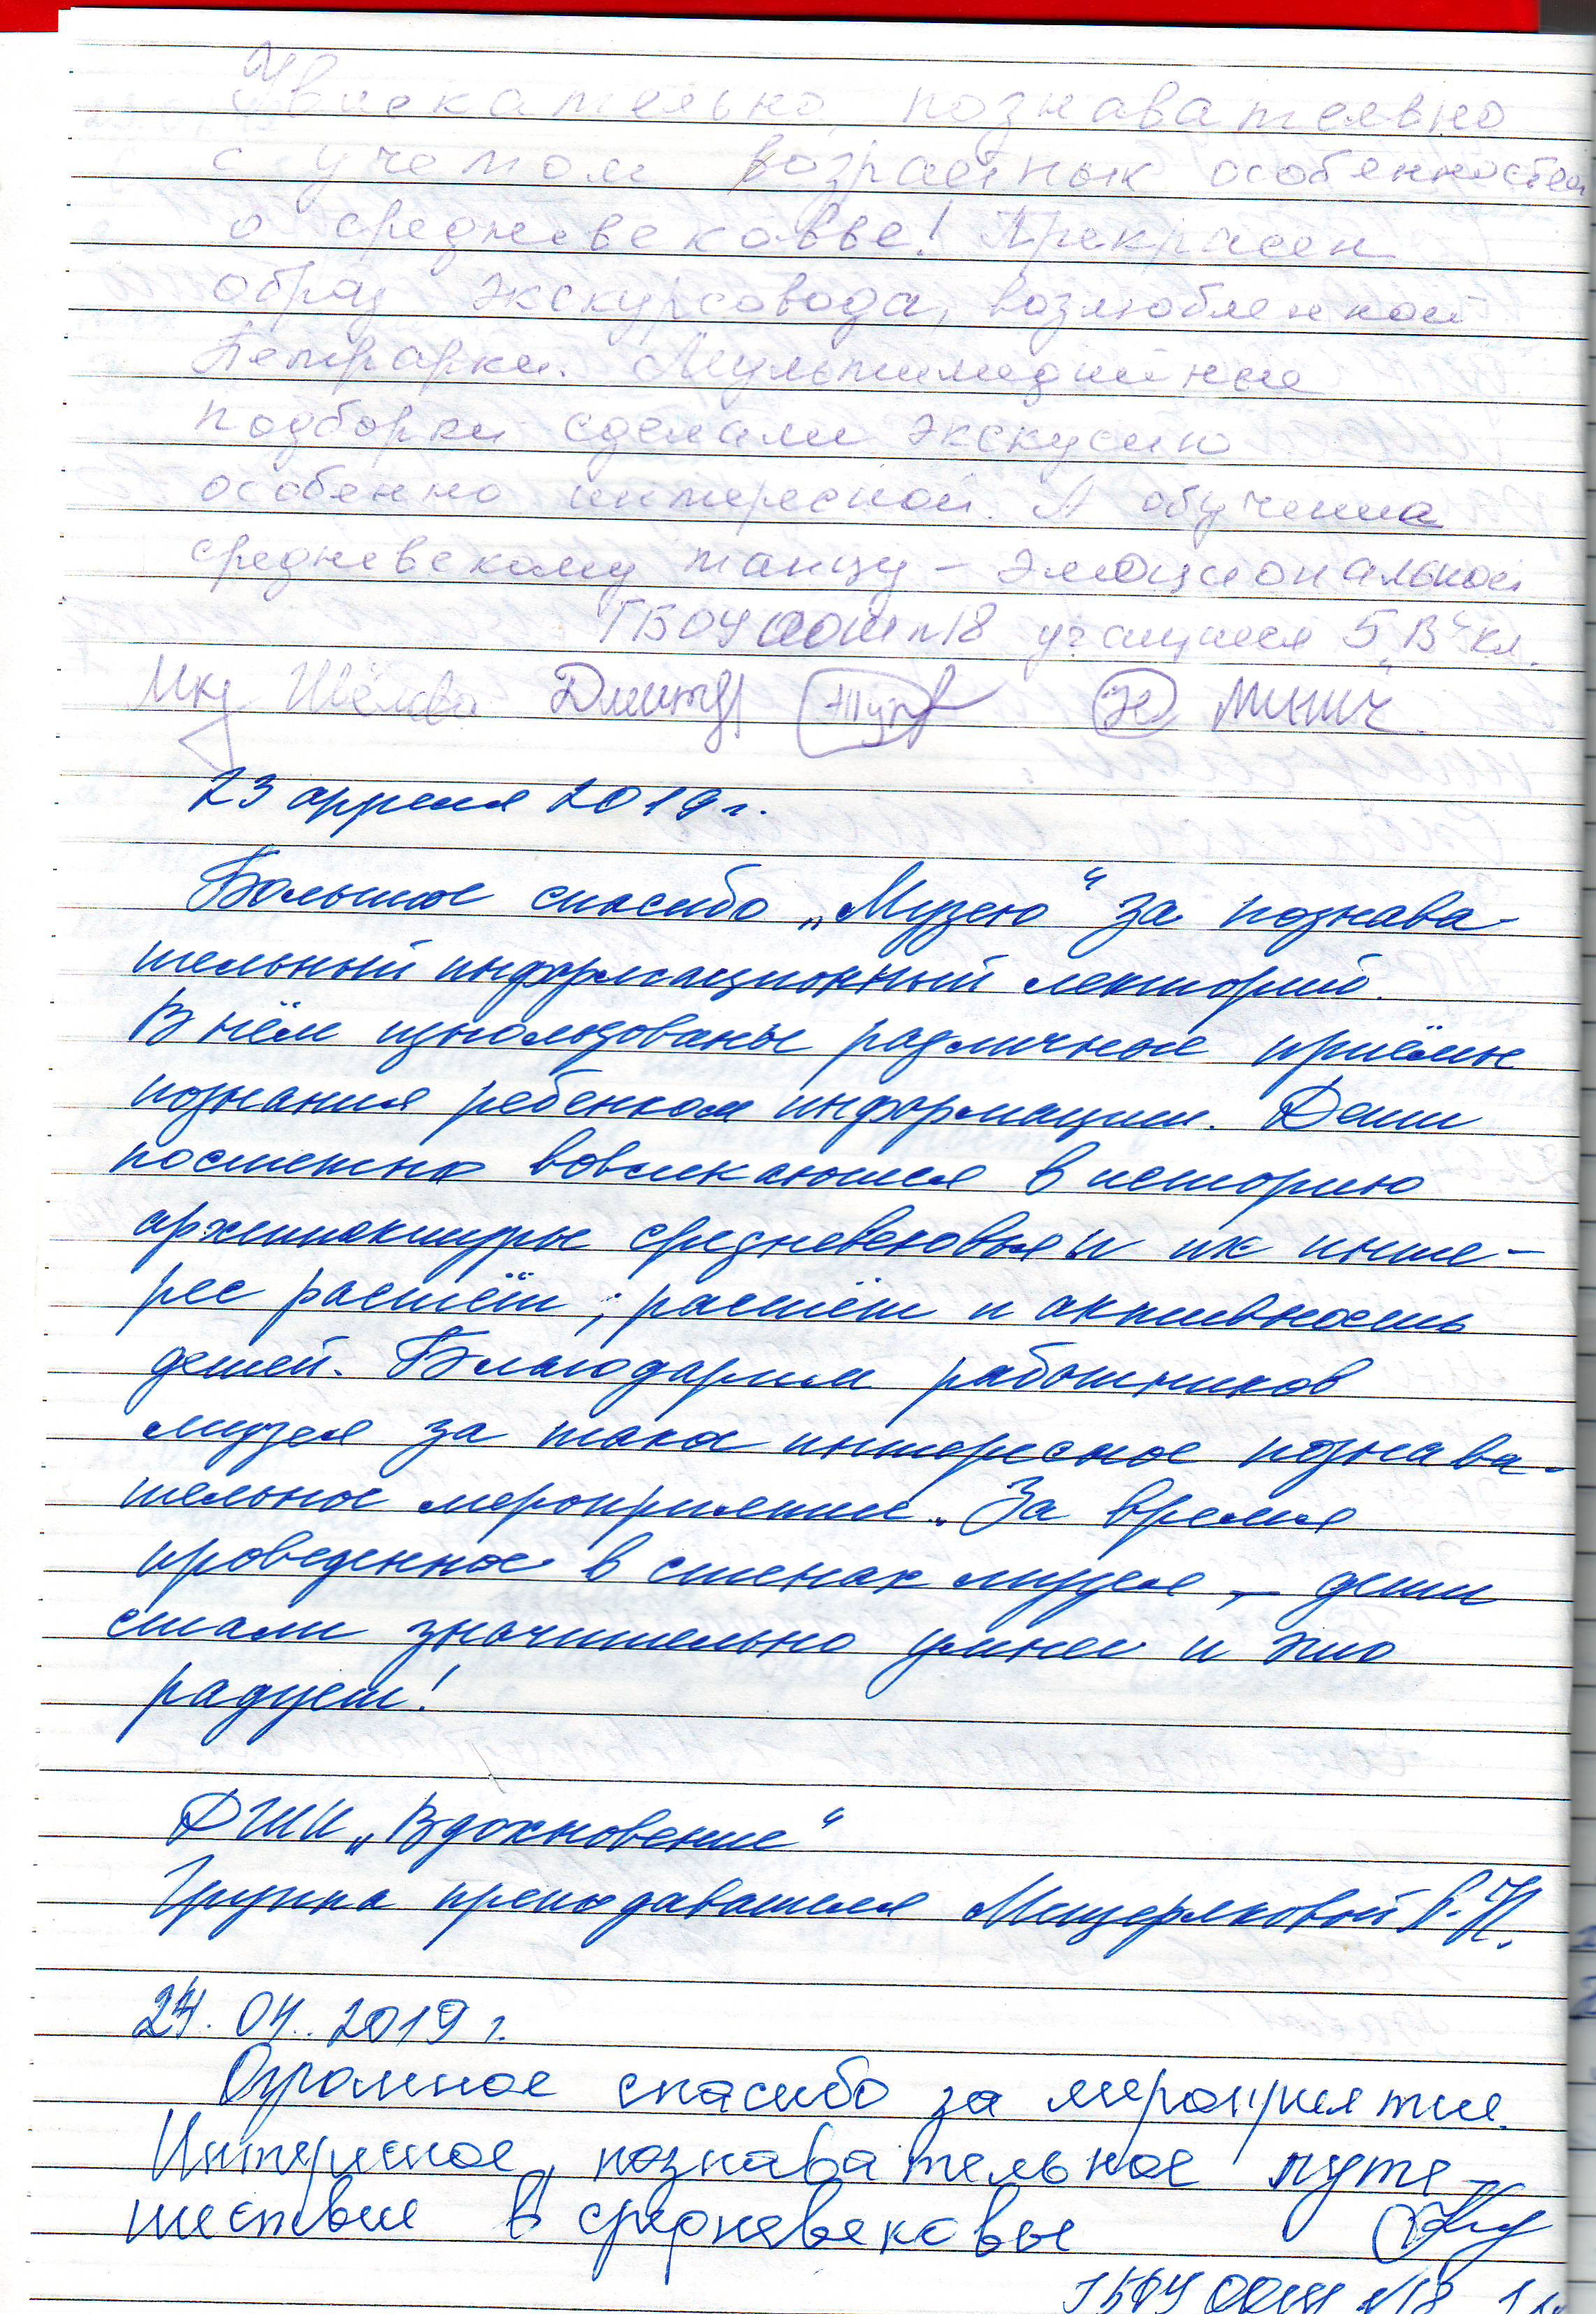 Увлекательно, познавательно
с учетом возрастных особенностей
о средневековье! Прекрасен
образ экскурсовода, возлюбленной
Петрарки. Мультимедийные
подборки сделали экскусию
особенно интересной. А обучения
средневекому танцу – эмоциональной
ГБОУ ООШ №18 учащиеся 5 „В“ кл.
Минич
23 апреля 2019 г.
Большое спасибо „Музею“ за познава-
тельный информационный лекторий.
В нём использованы различные приёмы
познания ребенком информации. Дети
постепенно вовлекаются в историю
архитектуры средневековья и их инте-
рес растёт; растёт и активность
детей. Благодарим работников
музея за такое интересное познава-
тельное мероприятие. За время
проведенное в стенах музея, – дети
стали значительно умнее и это
радует!
ДШИ „Вдохновение“
Группа преподавателя Мещеряковой
24.04.2019 г.
Огромное спасибо за мероприятие.
Интересное, познавательное путе-
шествие в средневековье
ГБОУ ООШ №18